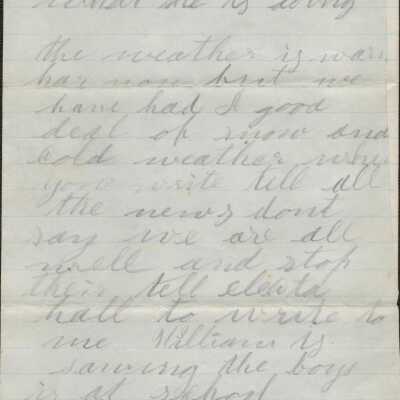 what she is doing
the weather is warm
har now but we
have had I good
deal of snow and
cold weather when
you write tell all
the news dont
say we are all
well and stop
their tell
hall to write to
me William is
sawing the boys
is at school